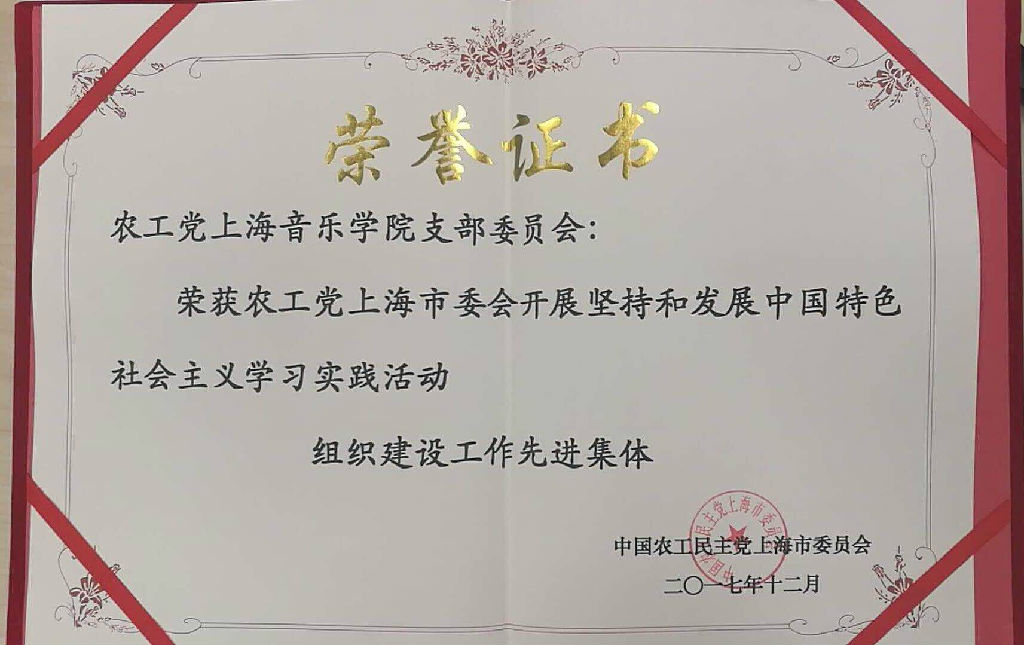 荣誉证书
农工党上海音乐学院支部委员会：
荣获农工党上海市委会开展坚持和发展中国特色
社会主义学习实践活动
组织建设工作先进集体
中国农工民主党上海市委员会
中国农工民主党上海市委员会
二〇一七年十二月